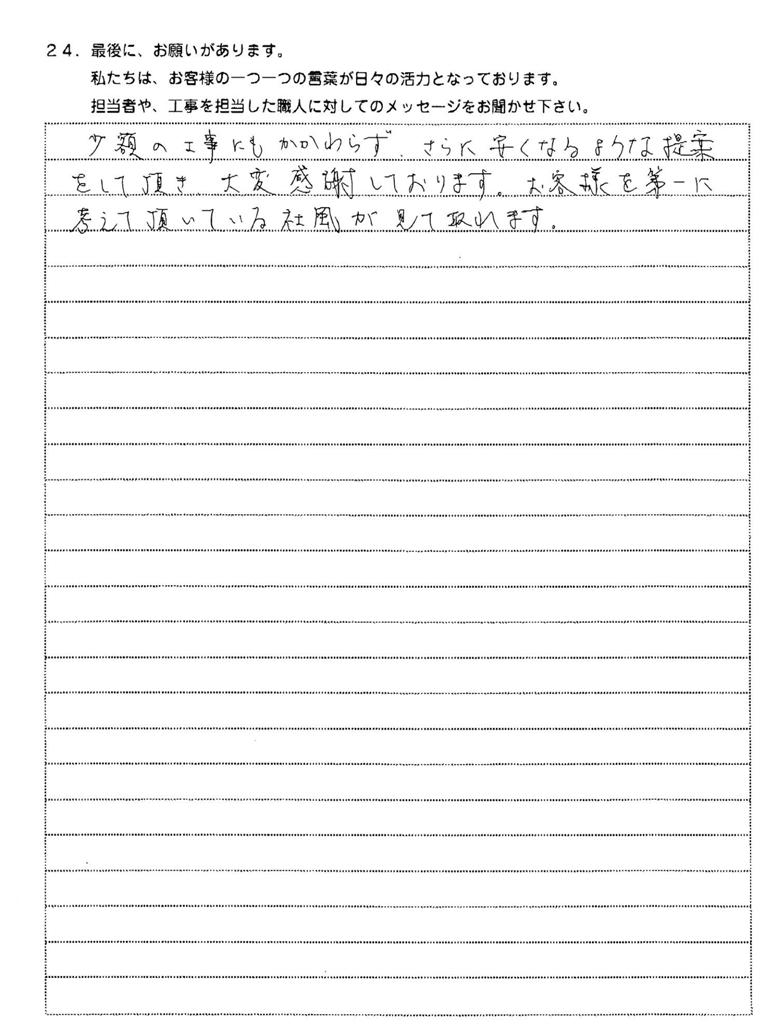 24．最後に、お願いがあります。
私たちは、お客様の一つ一つの言葉が日々の活力となっております。
担当者や、工事を担当した職人に対してのメッセージをお聞かせ下さい。
少額の工事にもかかわらず、さらに安くなるような提案
をして頂き、大変感謝しております。お客様を第一に
考えて頂いている社風が見て取れます。